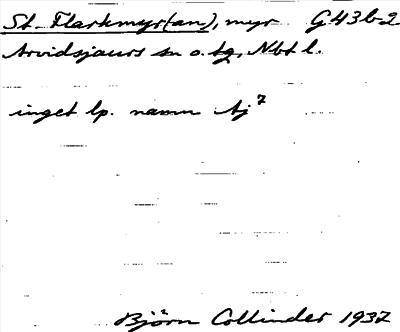 St. Flarkmyr(an), myr G43b-2
Arvidsjaurs sn o. tg, Nbt l.
inget lp. namn Aj⁷
Björn Collinder 1937